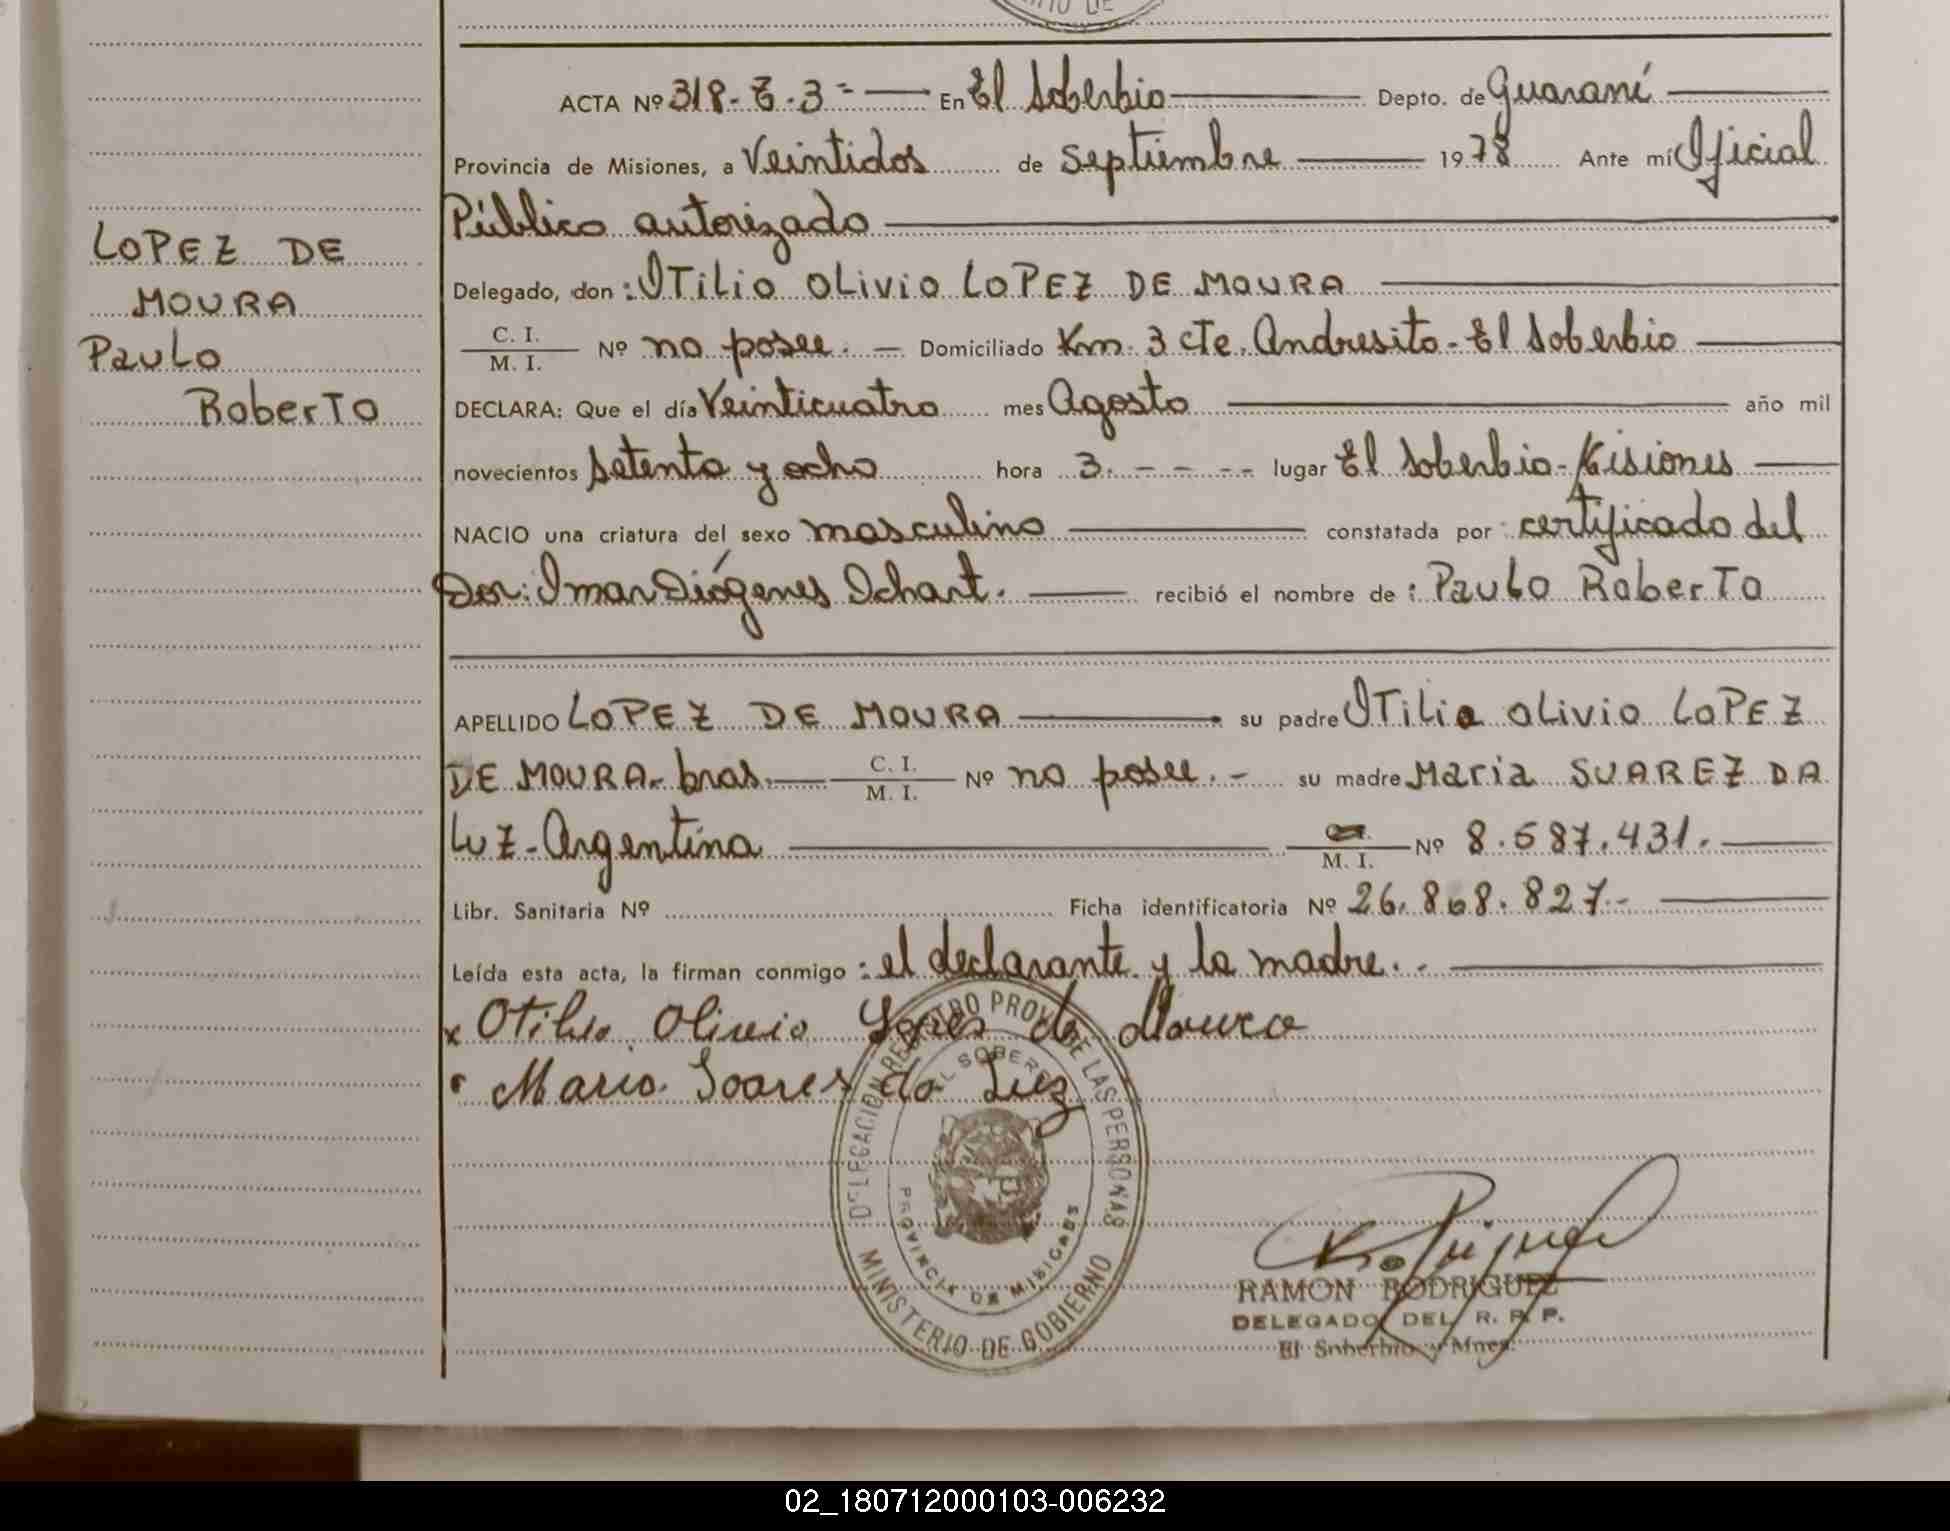 ACTA Nº 318-T-3- En El Soberbio Depto. de Guaraní
Provincia de Misiones, a Veintidos de Septiembre 1978 Ante mi Oficial
Público autorizado
LOPEZ DE
MOURA
Paulo
Roberto
Delegado, don: OTiLiO OLiViO LOPEZ DE MOURA
C. I.
M. I. Nº no posee. Domiciliado Km. 3 cte. Andresito - El Soberbio
DECLARA: Que el día Veinticuatro mes Agosto año mil
novecientos setenta y ocho hora 3. - - - - lugar El Soberbio - Misiones
NACIO una criatura del sexo masculino constatada por certificado del
Dor: Omar Diógenes Ichart. recibió el nombre de: Paulo Roberto
APELLIDO LOPEZ DE MOURA su padre OTiLio OLiViO LOPEZ
DE MOURA - bras. C. I.
M. I. Nº no posee. - su madre Maria SUAREZ DA
LUZ - Argentina M. I. Nº 8.587.431.
Libr. Sanitaria Nº Ficha identificatoria Nº 26.868.827.-
Leída esta acta, la firman conmigo: el declarante y la madre. -
x Otilio Olivio Lopes de Moura
Maria Soares da Luz
DELEGACION REGISTRO PROV. DE LAS PERSONAS
EL SOBERBIO
PROVINCIA DE MISIONES
MINISTERIO DE GOBIERNO
RAMON RODRIGUEZ
DELEGADO DEL R. P. P.
El Soberbio - Mnes.
02_180712000103-006232